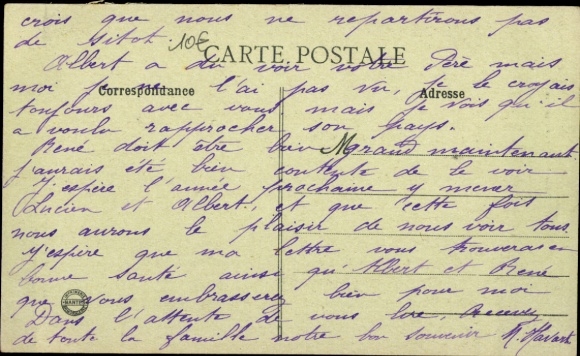 crois que nous ne repartirons pas
de sitot.
10€
CARTE POSTALE
Albert a du voir votre Père mais
moi je ne l'ai pas vu, je le croyais
Correspondance
Adresse
toujours avec vous mais je vois qu'il
a voulu rapprocher son pays.
René doit être bien grand maintenant
M
j'aurais été bien contente de le voir
J'espère l'année prochaine y mener
Lucien et Albert, et que cette fois
nous aurons le plaisir de nous voir tous.
J'espère que ma lettre vous trouveras en
bonne santé ainsi qu'Albert et René
que vous embrasserez bien pour moi
Dans l'attente de vous lire, recevez
de toute la famille notre bon souvenir
NANTES